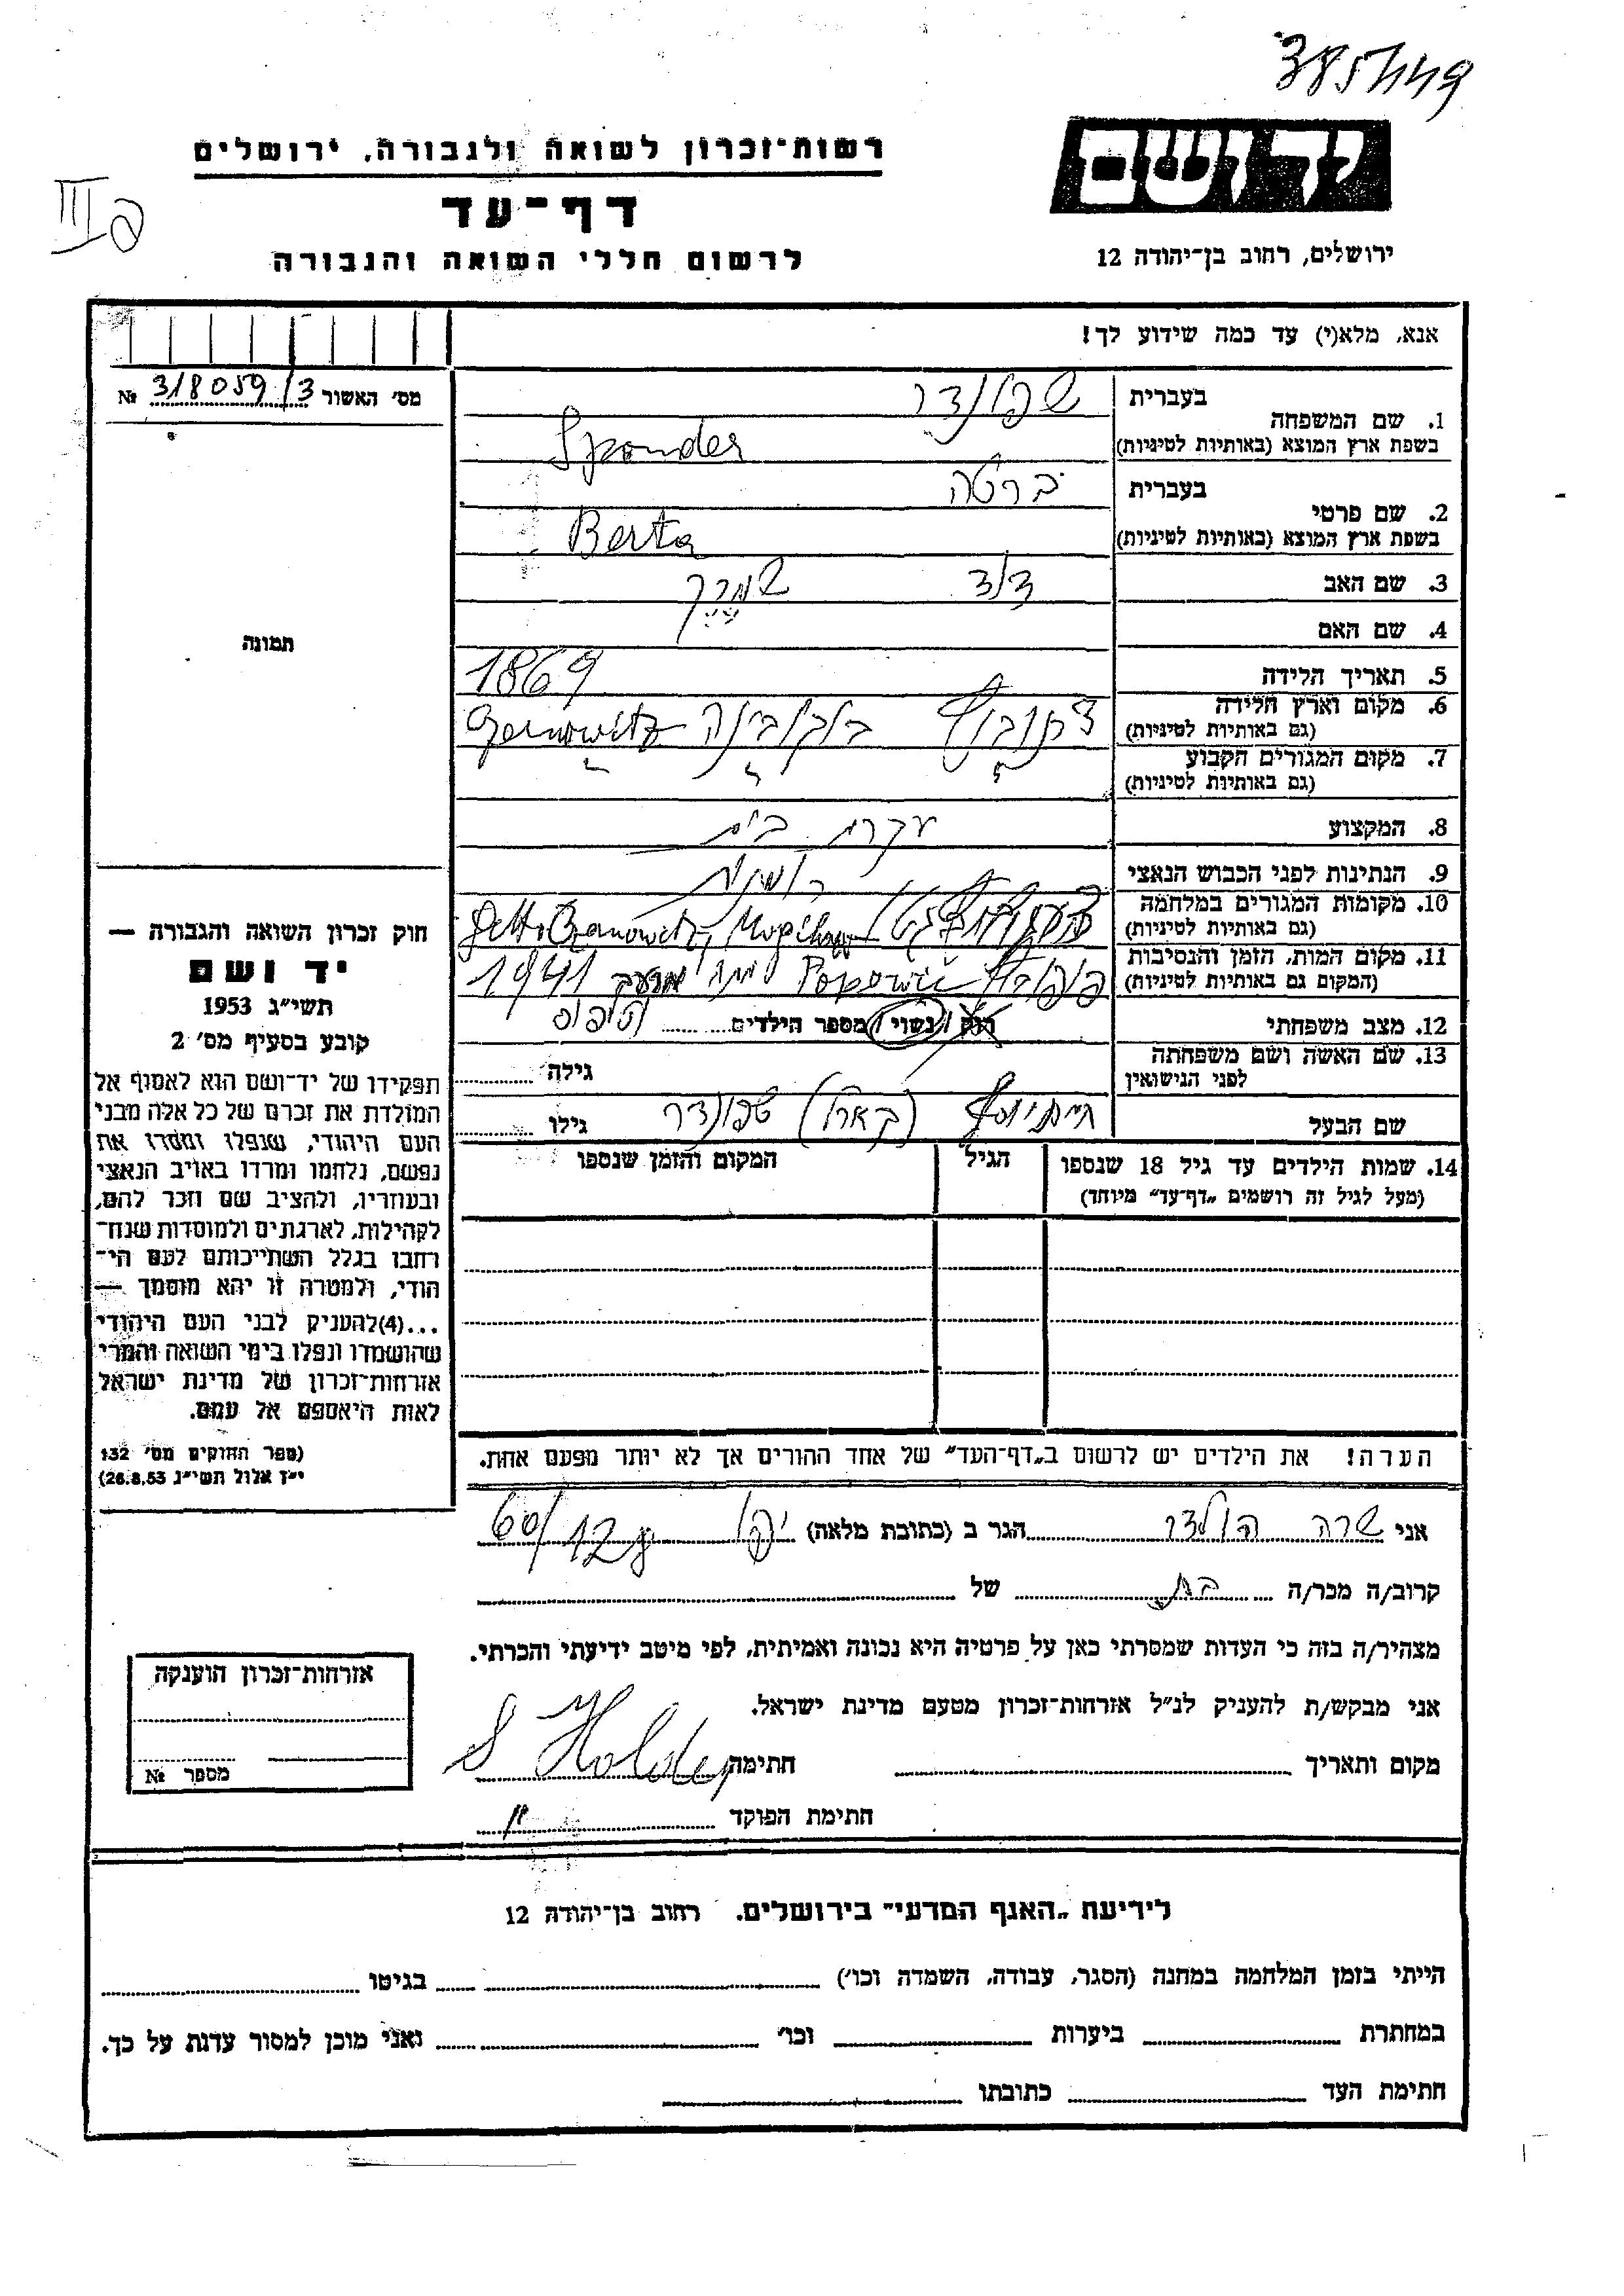 385/449
רשות־זכרון לשואה ולגבורה, ירושלים
דף־עד
לרשום חללי השואה והגבורה
III
יד ושם
ירושלים, רחוב בן־יהודה 12
אנא, מלא(י) עד כמה שידוע לך!
מס׳ האשור 318059/3 №
תמונה
1. שם המשפחה
בעברית שפונדר
בשפת ארץ המוצא (באותיות לטיניות) Sponder
2. שם פרטי
בעברית ברטה
בשפת ארץ המוצא (באותיות לטיניות) Berta
3. שם האב דוד
4. שם האם
5. תאריך הלידה 1869
6. מקום וארץ הלידה
(גם באותיות לטיניות) בוקובינה Czernowitz
7. מקום המגורים הקבוע
(גם באותיות לטיניות)
8. המקצוע עקרת בית
9. הנתינות לפני הכבוש הנאצי רומנית
10. מקומות המגורים במלחמה
(גם באותיות לטיניות)
11. מקום המות, הזמן והנסיבות
(המקום גם באותיות לטיניות) Popowic מתה מרעב 1941
12. מצב משפחתי רוק / נשוי / מספר הילדים
13. שם האשה ושם משפחתה
לפני הנישואין גילה
שם הבעל שפונדר גילו
14. שמות הילדים עד גיל 18 שנספו
(מעל לגיל זה רושמים „דף־עד״ מיוחד)
הגיל
המקום והזמן שנספו
הערה! את הילדים יש לרשום ב„דף־העד״ של אחד ההורים אך לא יותר מפעם אחת.
חוק זכרון השואה והגבורה —
יד ושם
תשי״ג 1953
קובע בסעיף מס׳ 2
תפקידו של יד־ושם הוא לאסוף אל
המולדת את זכרם של כל אלה מבני
העם היהודי, שנפלו ומסרו את
נפשם, נלחמו ומרדו באויב הנאצי
ובעוזריו, ולהציב שם וזכר להם,
לקהילות, לארגונים ולמוסדות שנח־
רבו בגלל השתייכותם לעם הי־
הודי, ולמטרה זו יהא מוסמך —
...(4)להעניק לבני העם היהודי
שהושמדו ונפלו בימי השואה והמרי
אזרחות־זכרון של מדינת ישראל
לאות היאספם אל עמם.
(ספר החוקים מס׳ 132
י״ז אלול תשי״ג 26.8.53)
אני שרה הולדר הגר ב (כתובת מלאה) יפו 60/12
קרוב/ה מכר/ה בת של
מצהיר/ה בזה כי העדות שמסרתי כאן על פרטיה היא נכונה ואמיתית, לפי מיטב ידיעתי והכרתי.
אני מבקש/ת להעניק לנ״ל אזרחות־זכרון מטעם מדינת ישראל.
מקום ותאריך חתימה S Holder
חתימת הפוקד
אזרחות־זכרון הוענקה
מספר №
לידיעת „האגף המדעי״ בירושלים. רחוב בן־יהודה 12
הייתי בזמן המלחמה במחנה (הסגר, עבודה, השמדה וכו׳) בגיטו
במחתרת ביערות וכו׳ ואני מוכן למסור עדות על כך.
חתימת העד כתובתו